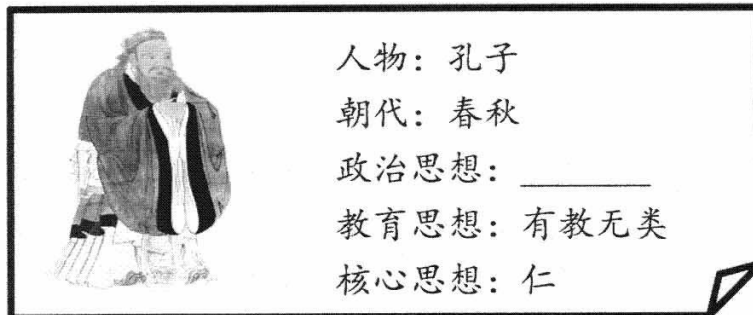 人物：孔子
朝代：春秋
政治思想：______
教育思想：有教无类
核心思想：仁